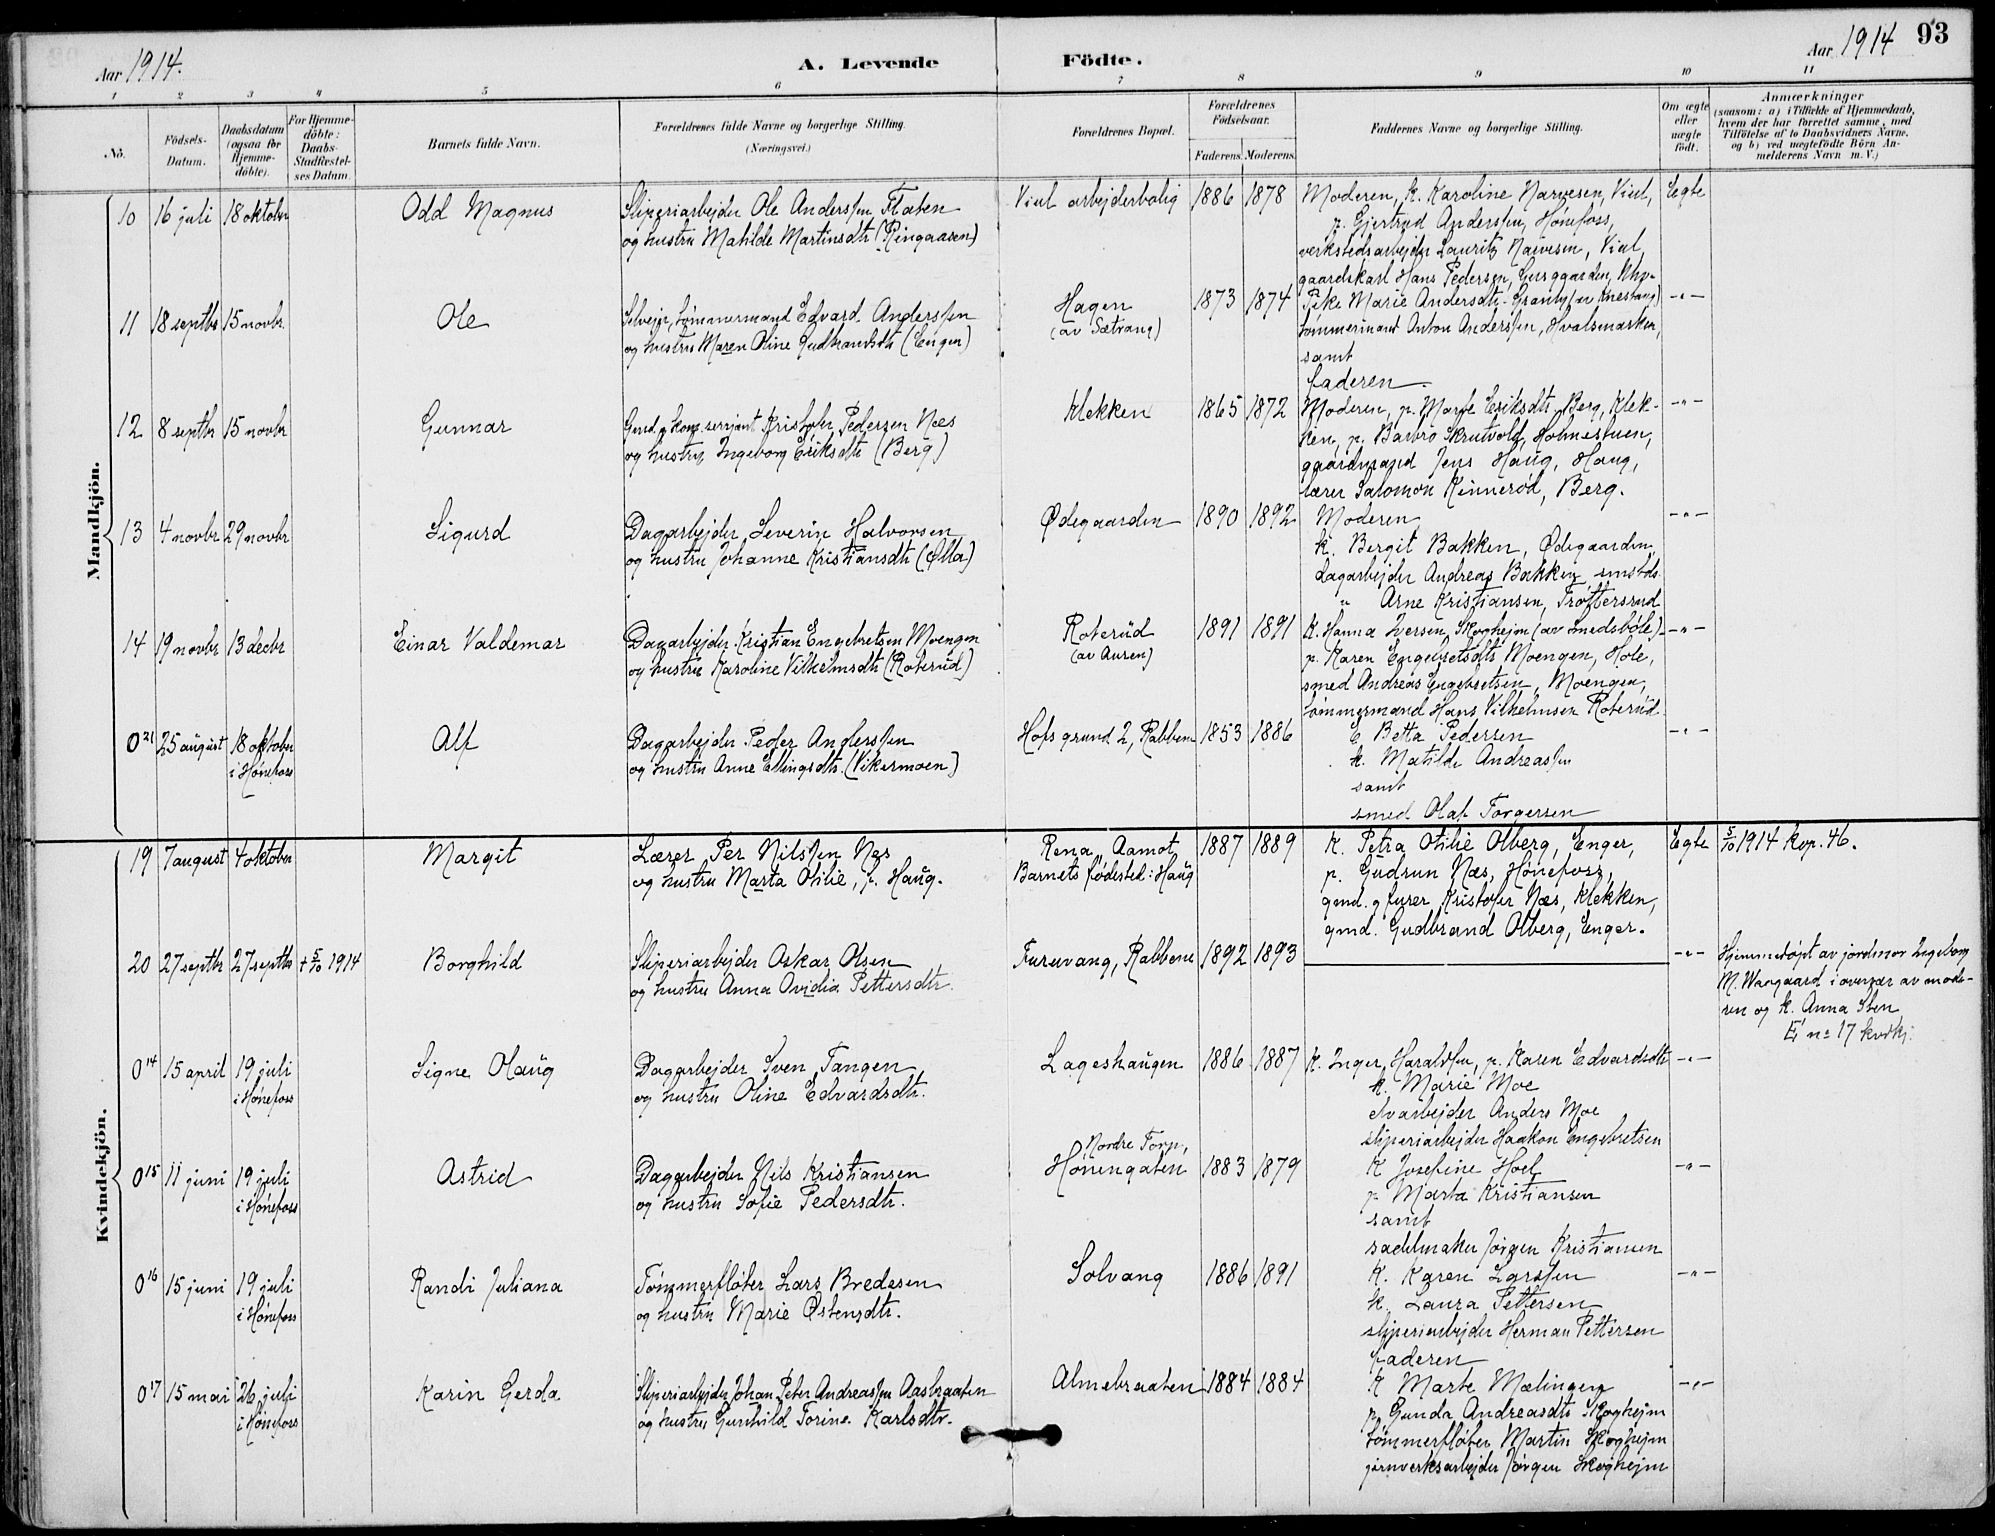 Aar 1914.
A. Levende
Födte.
Aar 1914
93
1 2 3 4 5 6 7 8 9 10 11
No.
Födsels-Datum.
Daabsdatum (ogsaa for Hjemme-döbte).
For Hjemme-döbte: Daabs-Stadfæstel-ses Datum.
Barnets fulde Navn.
Forældrenes fulde Navne og borgerlige Stilling. (Næringsvei.)
Forældrenes Bopæl.
Forældrenes Födselsaar.
Faderens. Moderens.
Faddernes Navne og borgerlige Stilling.
Om ægte eller uægte födt.
Anmærkninger
(saasom: a) i Tilfælde af Hjemmedaab,
hvem der har forrettet samme, med
Tilföielse af to Daabsvidners Navne,
og b) ved uægtefödte Börn An-
melderens Navn m. V.)
Mandkjön.
10 16 juli 18 oktober
Odd Magnus
Sliperiarbejder Ole Anderssen Flaten
og hustru Matilde Martinsdtr (Ringaasen)
Viul arbejderbolig 1886 1878
Moderen, k. Karoline Narvesen, Viul,
p. Gjertrud Anderssen, Hønefoss,
verkstedsarbejder Lauritz Narvesen, Viul
gaardskarl Hans Pedersen,
Egte
11 18 septbr 15 novbr.
Ole
Selvejer, tømmermand Edvard Anderssen
og hustru Maren Oline Gudbrandsdtr (Engen)
Hagen
(av Sætrang)
1873 1874
Pike Marie Andersdtr
tømmermand Anton Anderssen, Hvalsmarken,
samt
faderen
-"-
12 8 septbr 15 novbr
Gunnar
Gmd. g komp. serjant Kristofer Pedersen Næs
og hustru Ingeborg Eriksdtr (Berg)
Klekken 1865 1872
Moderen, p. Marte Eriksdtr Berg, Klek-
ken, p. Barbro Skrutvold, Holmestuen,
gaardmand Jens Haug, Haug,
lærer Salomon Kinnerød, Berg.
-"-
13 4 novbr 29 novbr
Sigurd
Dagarbejder Severin Halvorsen
og hustru Johanne Kristiansdtr (Ølla)
Ødegaarden 1890 1892
Moderen
k. Bergit Bakken, Ødegaarden,
dagarbejder Andreas Bakken smstds.
" Arne Kristiansen, Trøttersrud
-"-
14 19 novbr 13 decbr
Einar Valdemar
Dagarbejder Kristian Engebretsen Moengen
og hustru Karoline Vilhelmsdtr (Roterud)
Roterud
(av Auren)
1891 1891
K. Hanna Iversen, Skoghejm (av Smedsbøle)
p. Karen Engebretsdtr Moengen, Hole,
smed Andreas Engebretsen, Moengen,
tømmermand Hans Vilhelmsen Roterud
-"-
0 21 25 august 18 oktober
i Hønefoss
Alf
Dagarbejder Peder Anderssen
og hustru Anne Ellingsdtr. (Vikermoen)
Hofs grund 2, Rabben 1853 1886
E Betta Pedersen
k. Matilde Andreassen
samt
smed Olaf Torgersen
-"-
Kvindekjön.
19 7 august 4 oktober
Margit
Lærer Per Nilssen Næs
og hustru Marta Otilie, f. Haug.
Rena, Aamot,
Barnets fødested: Haug
1887 1889
K. Petra Otilie Olberg, Enger,
p. Gudrun Næs, Hønefoss,
gmd. g furer Kristofer Næs, Klekken,
gmd. Gudbrand Olberg, Enger.
Egte
5/10 1914 kop. 46.
20 27 septbr 27 septbr + 5/10 1914
Borghild
Sliperiarbejder Oskar Olsen
og hustru Anna Ovidia Pettersdtr.
Furuvang, Rabben 1892 1893
-"-
Hjemmedøpt av jordmor Ingeborg
M. Waagaard i overvær av mode-
ren og k. Anna Sten
E no 17 kvdkj.
0 14 15 april 19 juli
i Hønefoss
Signe Olaug
Dagarbejder Sven Tangen
og hustru Oline Edvardsdtr.
Lageshaugen 1886 1887
K. Inger Haraldsen, p. Karen Edvardsdtr
k. Marie Moe
elvarbejder Anders Moe
sliperiarbejder Haakon Engebretsen
-"-
0 15 11 juni 19 juli
i Hønefoss
Astrid
Dagarbejder Nils Kristiansen
og hustru Sofie Pedersdtr.
Nordre Torp,
Hønengaten 1883 1879
K Josefine Hoel
p. Marta Kristiansen
samt
sadelmaker Jørgen Kristiansen
-"-
0 16 15 juni 19 juli
i Hønefoss
Randi Juliana
Tømmerfløter Lars Bredesen
og hustru Marie Østensdtr.
Solvang 1886 1891
K. Karen Larssen
k. Laura Pettersen
sliperiarbejder Herman Pettersen
faderen
-"-
0 17 15 mai 26 juli
i Hønefoss
Karin Gerda
Sliperiarbejder Johan Peter Andreassen Aasbraaten
og hustru Gunhild Torine Karlsdtr.
Almebraaten 1884 1884
K Marte Mælingen
p. Gunda Andreasdtr Skoghejm
tømmerfløter Martin Skoghejm
jernverksarbejder Jørgen Skoghejm
-"-